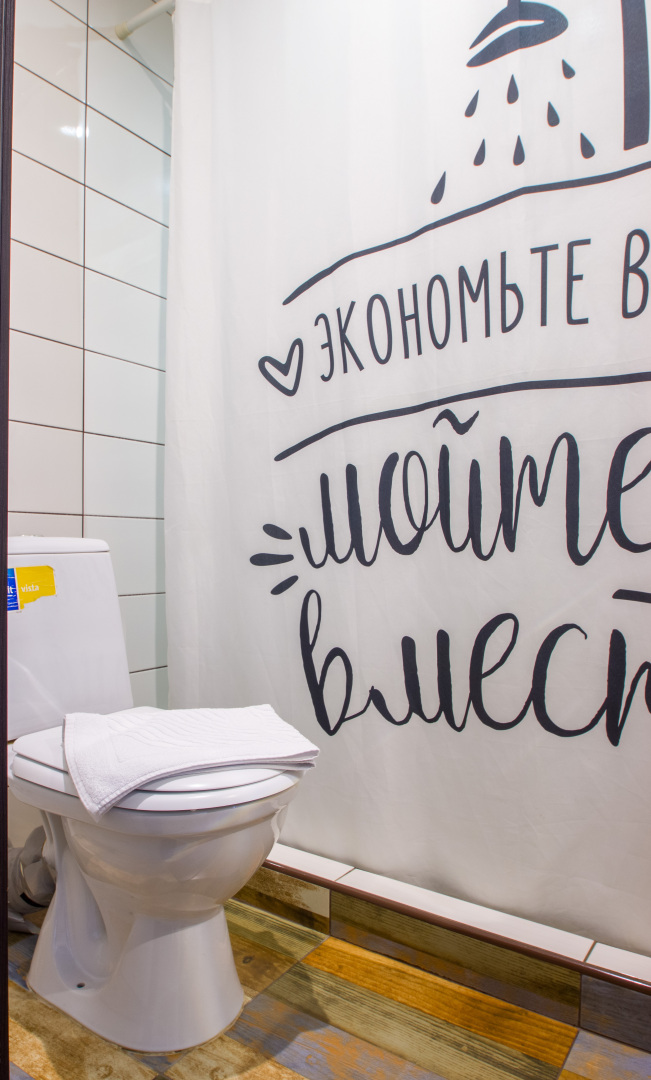 ЭКОНОМЬТЕ В
мойте
вмест
it vista